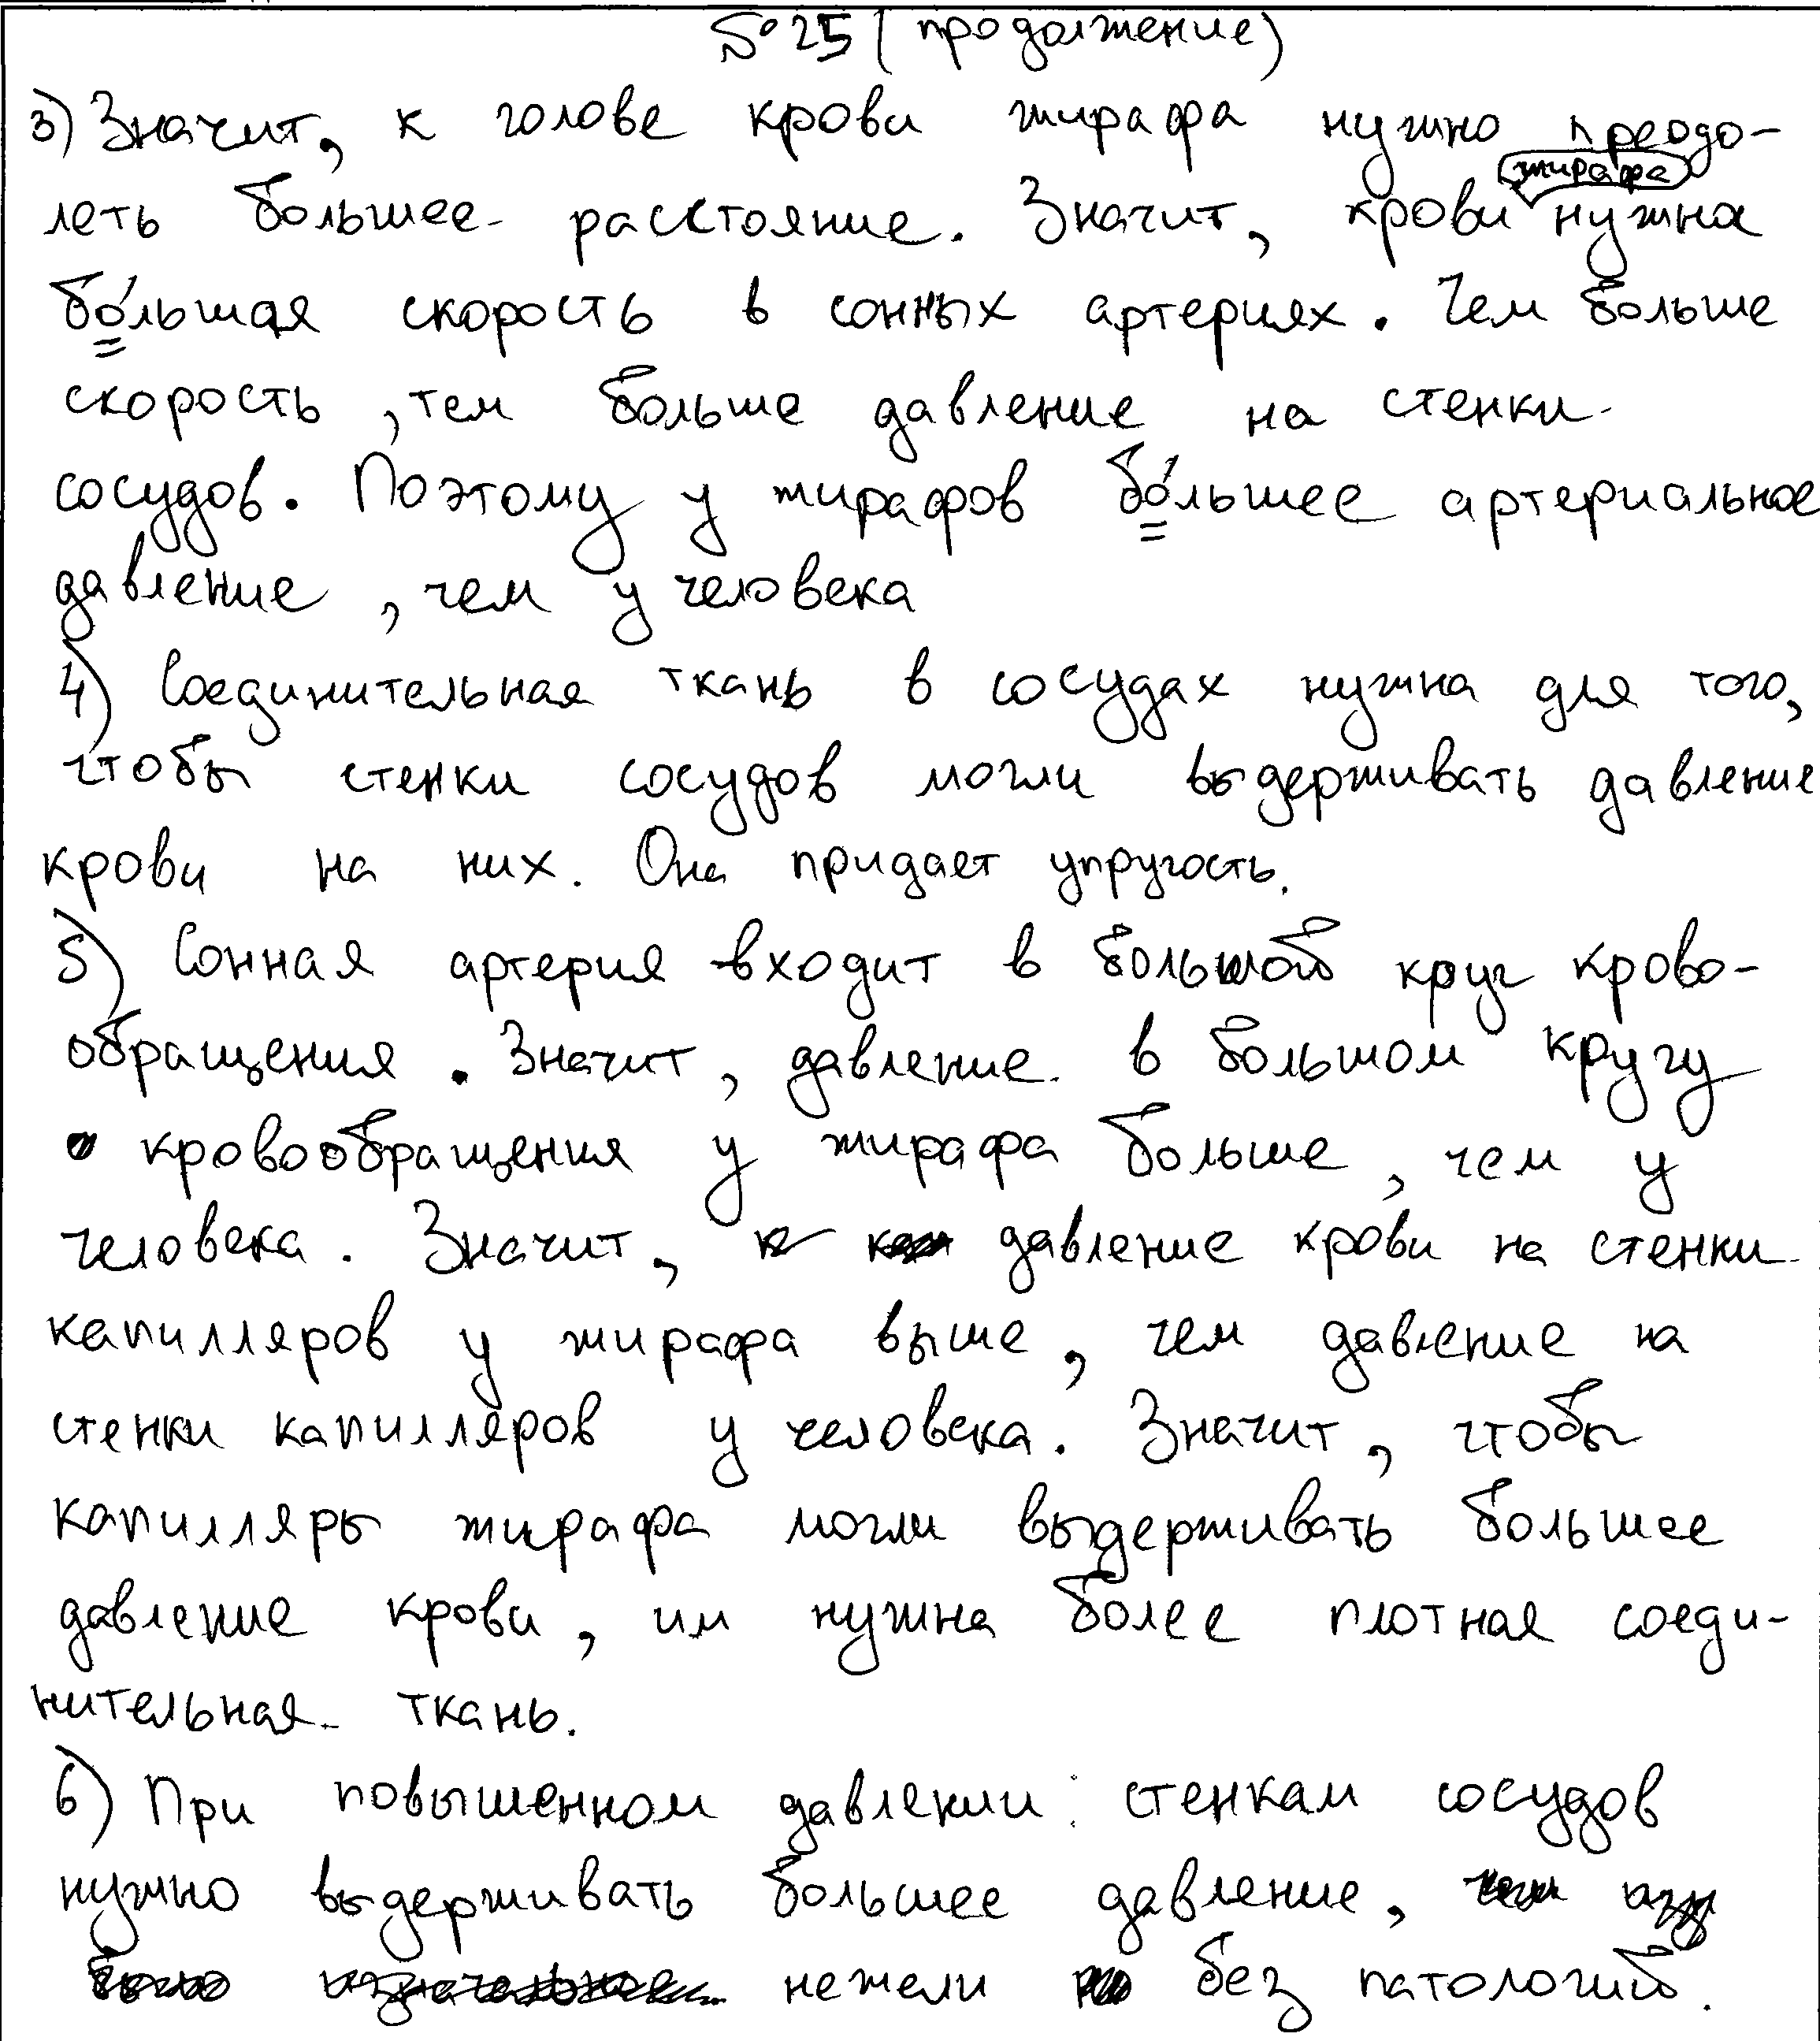 №25 (продолжение)
3) Значит, к голове крови жирафа нужно преодо-
леть большее расстояние. Значит, крови жирафа нужна
бо́льшая скорость в сонных артериях. Чем больше
скорость, тем больше давление на стенки
сосудов. Поэтому у жирафов бо́льшее артериальное
давление, чем у человека
4) Соединительная ткань в сосудах нужна для того,
чтобы стенки сосудов могли выдерживать давление
крови на них. Она придает упругость.
5) Сонная артерия входит в большой круг крово-
обращения. Значит, давление в большом кругу
кровообращения у жирафа больше, чем у
человека. Значит, давление крови на стенки
капилляров у жирафа выше, чем давление на
стенки капилляров у человека. Значит, чтобы
капилляры жирафа могли выдерживать большее
давление крови, им нужна более плотная соеди-
нительная ткань.
6) При повышенном давлении стенкам сосудов
нужно выдерживать большее давление,
нежели без патологий.